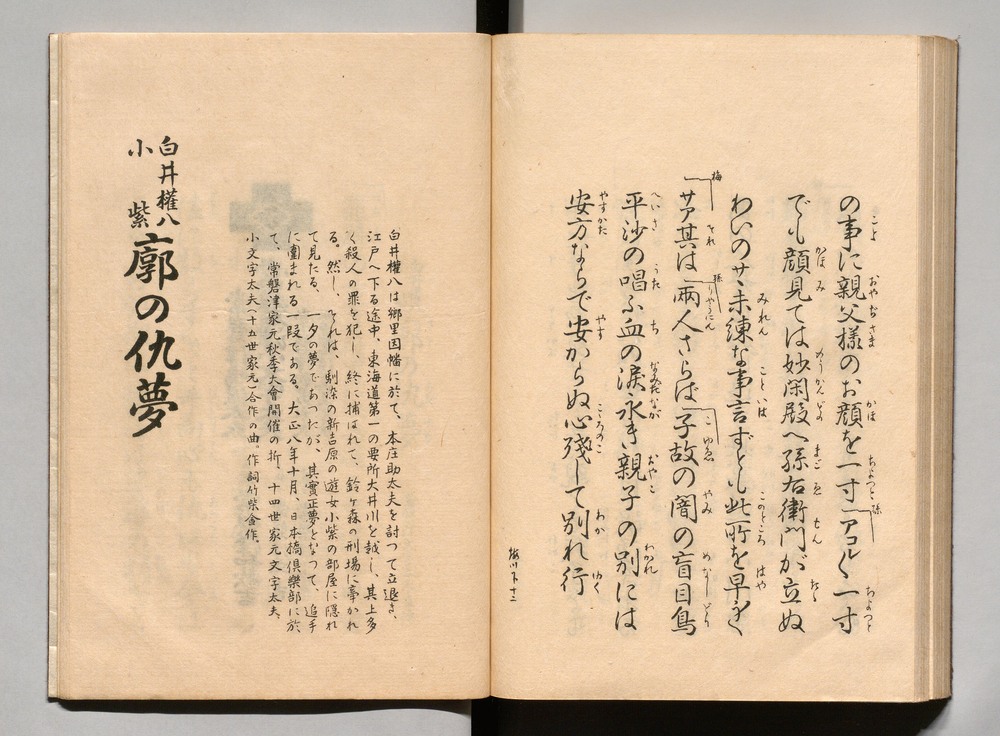 の事に親父様のお顔を一寸アコレ〱一寸
でも顔見ては妙閑殿へ孫右衛門が立ぬ
わいのサヽ未練な事言ずとも此所を早ふ〱
梅
サア其は
孫
両人さらば子故の闇の盲目鳥
平沙の唱ふ血の涙永き親子の別には
安方ならで安からぬ心残して別れ行
梅川下十二
白井權八
小紫
廓の仇夢
白井權八は郷里因幡に於て、本庄助太夫を討つて立退き、
江戸へ下る途中、東海道第一の要所大井川を越し、其上多
く殺人の罪を犯し、終に捕はれて、鈴ヶ森の刑場に牽かれ
る。然し、それは、馴染の新吉原の遊女小紫の部屋に隠れ
て見たる、一夕の夢であつたが、其實正夢となつて、追手
に圍まれる一段である。大正八年十月、日本橋倶樂部に於
て、常磐津家元秋季大會開催の折、十四世家元文字太夫、
小文字太夫(十五世家元)合作の曲。作詞竹柴金作。